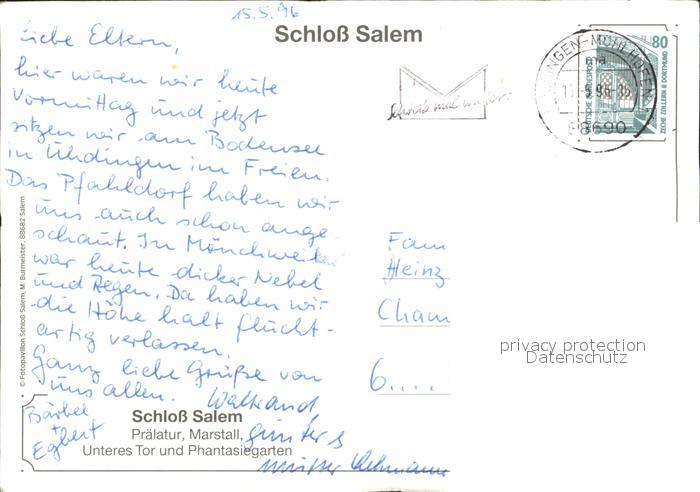 15.5.96
Schloß Salem
Liebe Eltern,
hier waren wir heute
Vormittag und jetzt
sitzen wir am Bodensee
in Uhldingen im Freien.
Das Pfahldorf haben wir
uns auch schon ange-
schaut. In Mönchweiler
war heute dicker Nebel
und Regen. Da haben wir
die Höhe halt flucht-
artig verlassen.
Ganz liebe Grüße von
uns allen. Waltraud,
Bärbel
+
Egbert
Günter &
Schreib mal wieder
88690
80
DEUTSCHE BUNDESPOST
ZECHE ZOLLERN II DORTMUND
Fam
Heinz
Cham
6....
privacy protection
Datenschutz
© Fotopavillon Schloß Salem, M. Burmeister, 88682 Salem
Schloß Salem
Prälatur, Marstall,
Unteres Tor und Phantasiegarten